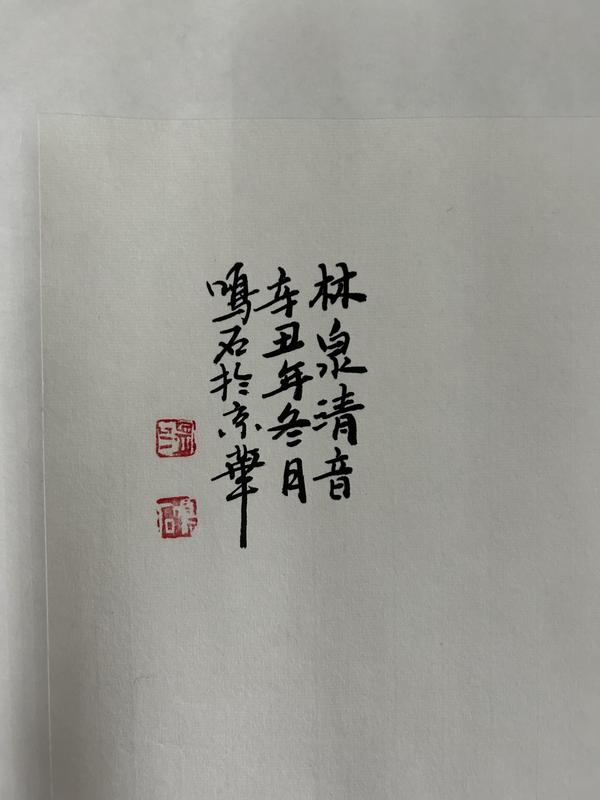 林泉清音
辛丑年冬月
鳴石於京華